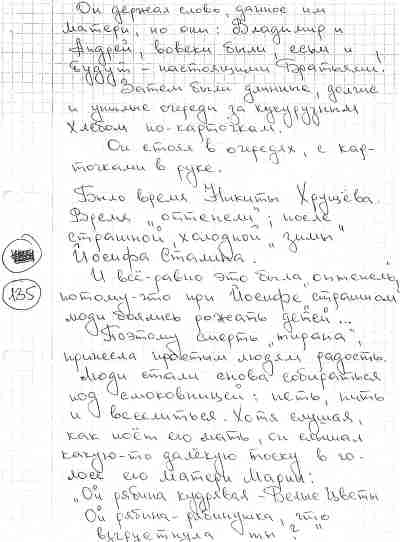 Он держал слово данное им
матери, но они: Владимир и
Андрей, вовеки были, есьм и
будут - настоящими Братьями!
Затем были длинные, долгие
и унылые очереди за кукурузным
хлебом по-карточкам.
Он стоял в очередях, с кар-
точками в руке.
Было время Никиты Хрущёва.
Время „оттепели“, после
страшной, холодной „зимы“
Йосифа Сталина.
И всё-равно это была „оттепель“,
135
потому-что при Йосифе „страшном“
люди боялись рожать детей...
Поэтому смерть „тирана“,
принесла простым людям радость.
Люди стали снова собираться
под смоковницей: петь, пить
и веселиться. Хотя слушая,
как поёт его мать, он слышал
какую-то далёкую тоску в го-
лосе его матери Марии:
„Ой рябина кудрявая - Белые цветы
Ой рябина-рябинушка, что
взгрустнула ты?“